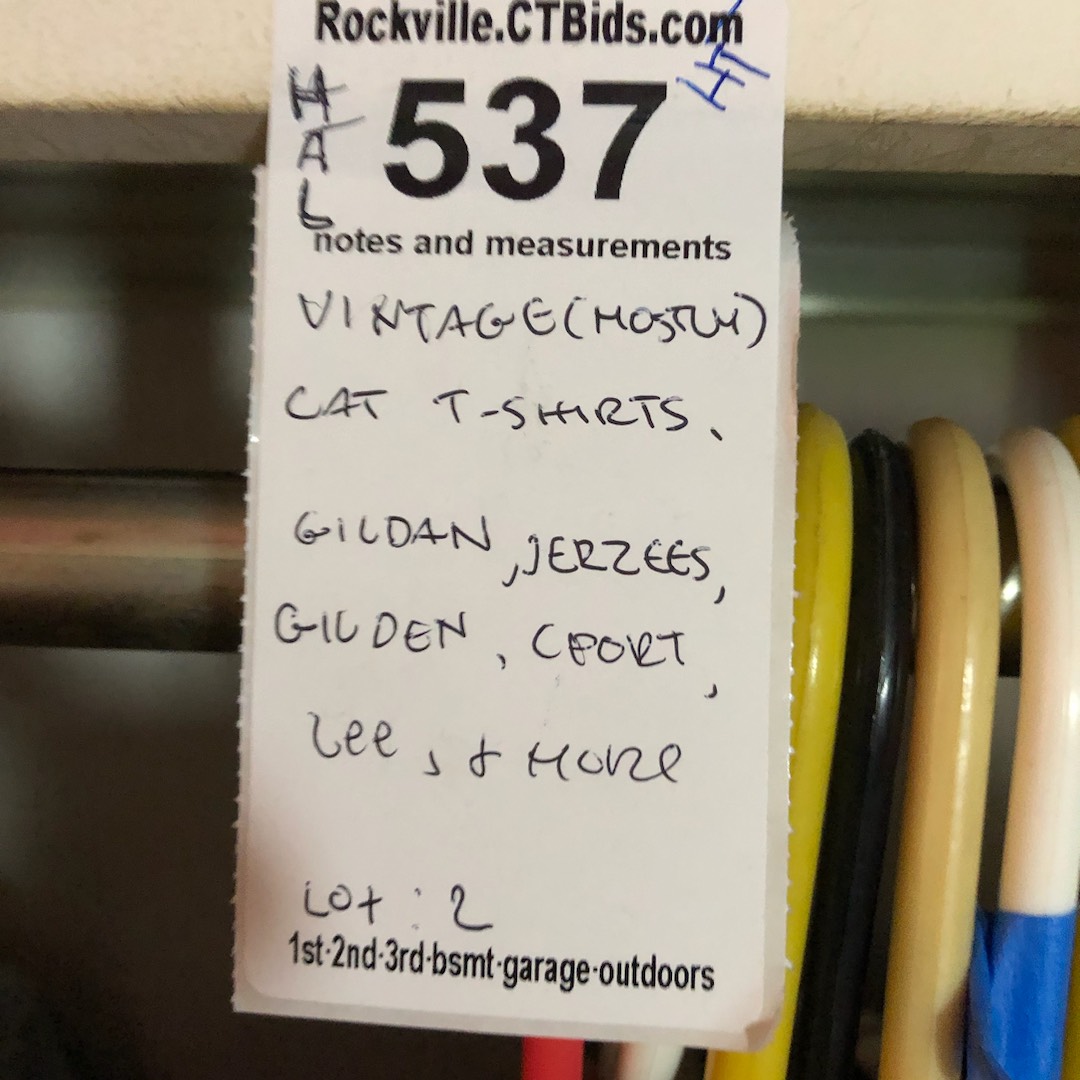 Rockville.CTBids.com
HAL
537
notes and measurements
VINTAGE (MOSTLY)
CAT T-SHIRTS,
GILDAN, JERZEES,
GILDEN, CPORT,
Lee, & MORE
LOT : 2
1st·2nd·3rd·bsmt·garage·outdoors